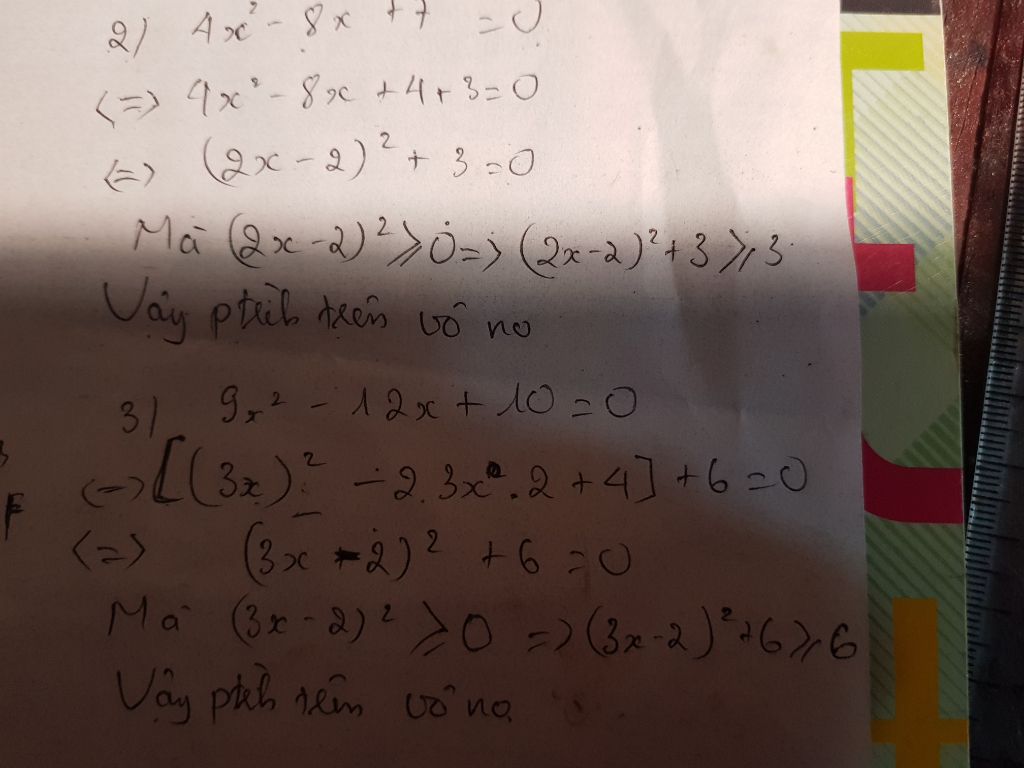 2) 4x² - 8x + 7 = 0
<=> 4x² - 8x + 4 + 3 = 0
<=> (2x - 2)² + 3 = 0
Mà (2x - 2)² ⩾ 0 => (2x - 2)² + 3 ⩾ 3
Vậy ptrình trên vô no
3) 9x² - 12x + 10 = 0
<=> [(3x)² - 2.3x.2 + 4] + 6 = 0
<=> (3x - 2)² + 6 = 0
Mà (3x - 2)² ⩾ 0 => (3x - 2)² + 6 ⩾ 6
Vậy ptrình trên vô no